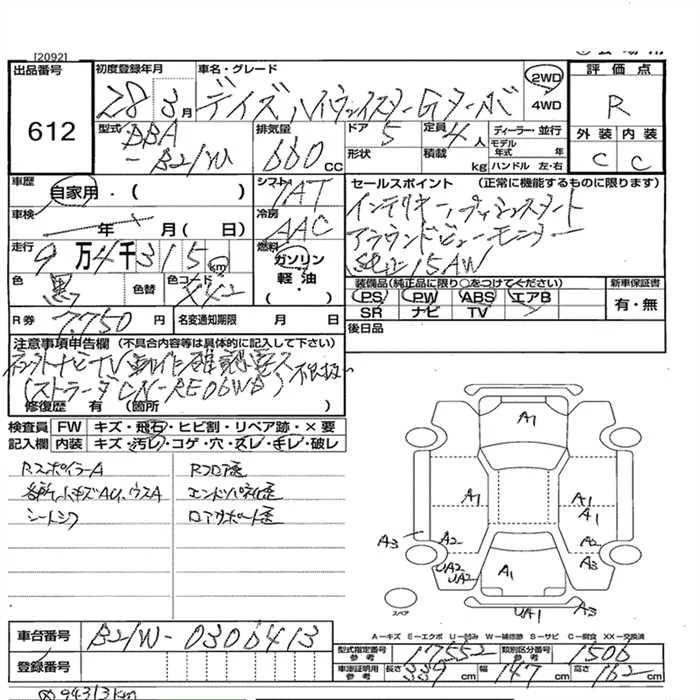 [2092]
出品番号
612
初度登録年月
28 3月
車名・グレード
デイズ ハイウェイスター Gターボ
2WD
4WD
評価点
R
外装 内装
C C
型式
DBA
-B21W
排気量
660 CC
ドア
5
形状
定員
4人
積載
kg
ディーラー・並行
モデル年式 年
ハンドル 左・右
車歴
自家用・( )
シフト
IAT
セールスポイント (正常に機能するものに限ります)
インテリキー、プッシュスタート
アラウンドビューモニター
純正15AW
車検
年 月( 日)
冷房
AAC
走行
9万4千315km
燃料
ガソリン
軽油
( )
色
黒
色替
色コード
X42
装備品(純正品に限り○をつけてください)
PS PW ABS エアB
SR ナビ TV
新車保証書
有・無
R券
7,750円
名変通知期限 月 日
後日品
注意事項申告欄 (不具合内容等は具体的に記入して下さい)
ネットナビTV動作確認要ス
(ストラーダCN-RE06WD)
修復歴 有 (箇所 )
検査員
記入欄
FW キズ・飛石・ヒビ割・リペア跡・×要
内装 キズ・汚レ・コゲ・穴・スレ・キレ・破レ
RスポイラーA
シートシワ
Rフロア歪
エンドパネル歪
ロアサポート歪
A1
A1
A1
A1
A3
A2
A2
UA2
UA2
A3
A1
UA1
A3
スペア
A-キズ E-エクボ U-凹み W-補修跡 S-サビ C-腐食 XX-交換済
車台番号
B21W-0306413
登録番号
型式指定番号
参考
17552
類別区分番号
参考
1506
車庫証明用
参考
長さ 339cm 幅 147cm 高さ 162cm
94313km